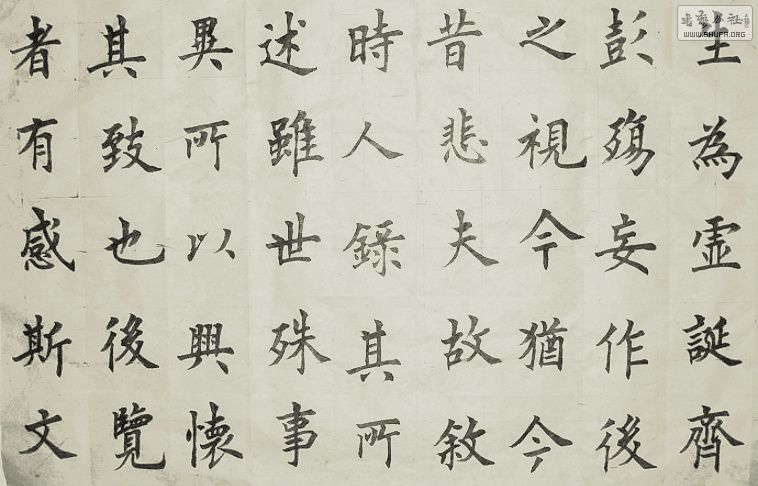 生為虛誕齊
彭殤妄作後
之視今猶今
昔悲夫故敘
時人錄其所
述雖世殊事
異所以興懷
其致也後覽
者有感斯文
WWW.SHUFA.ORG